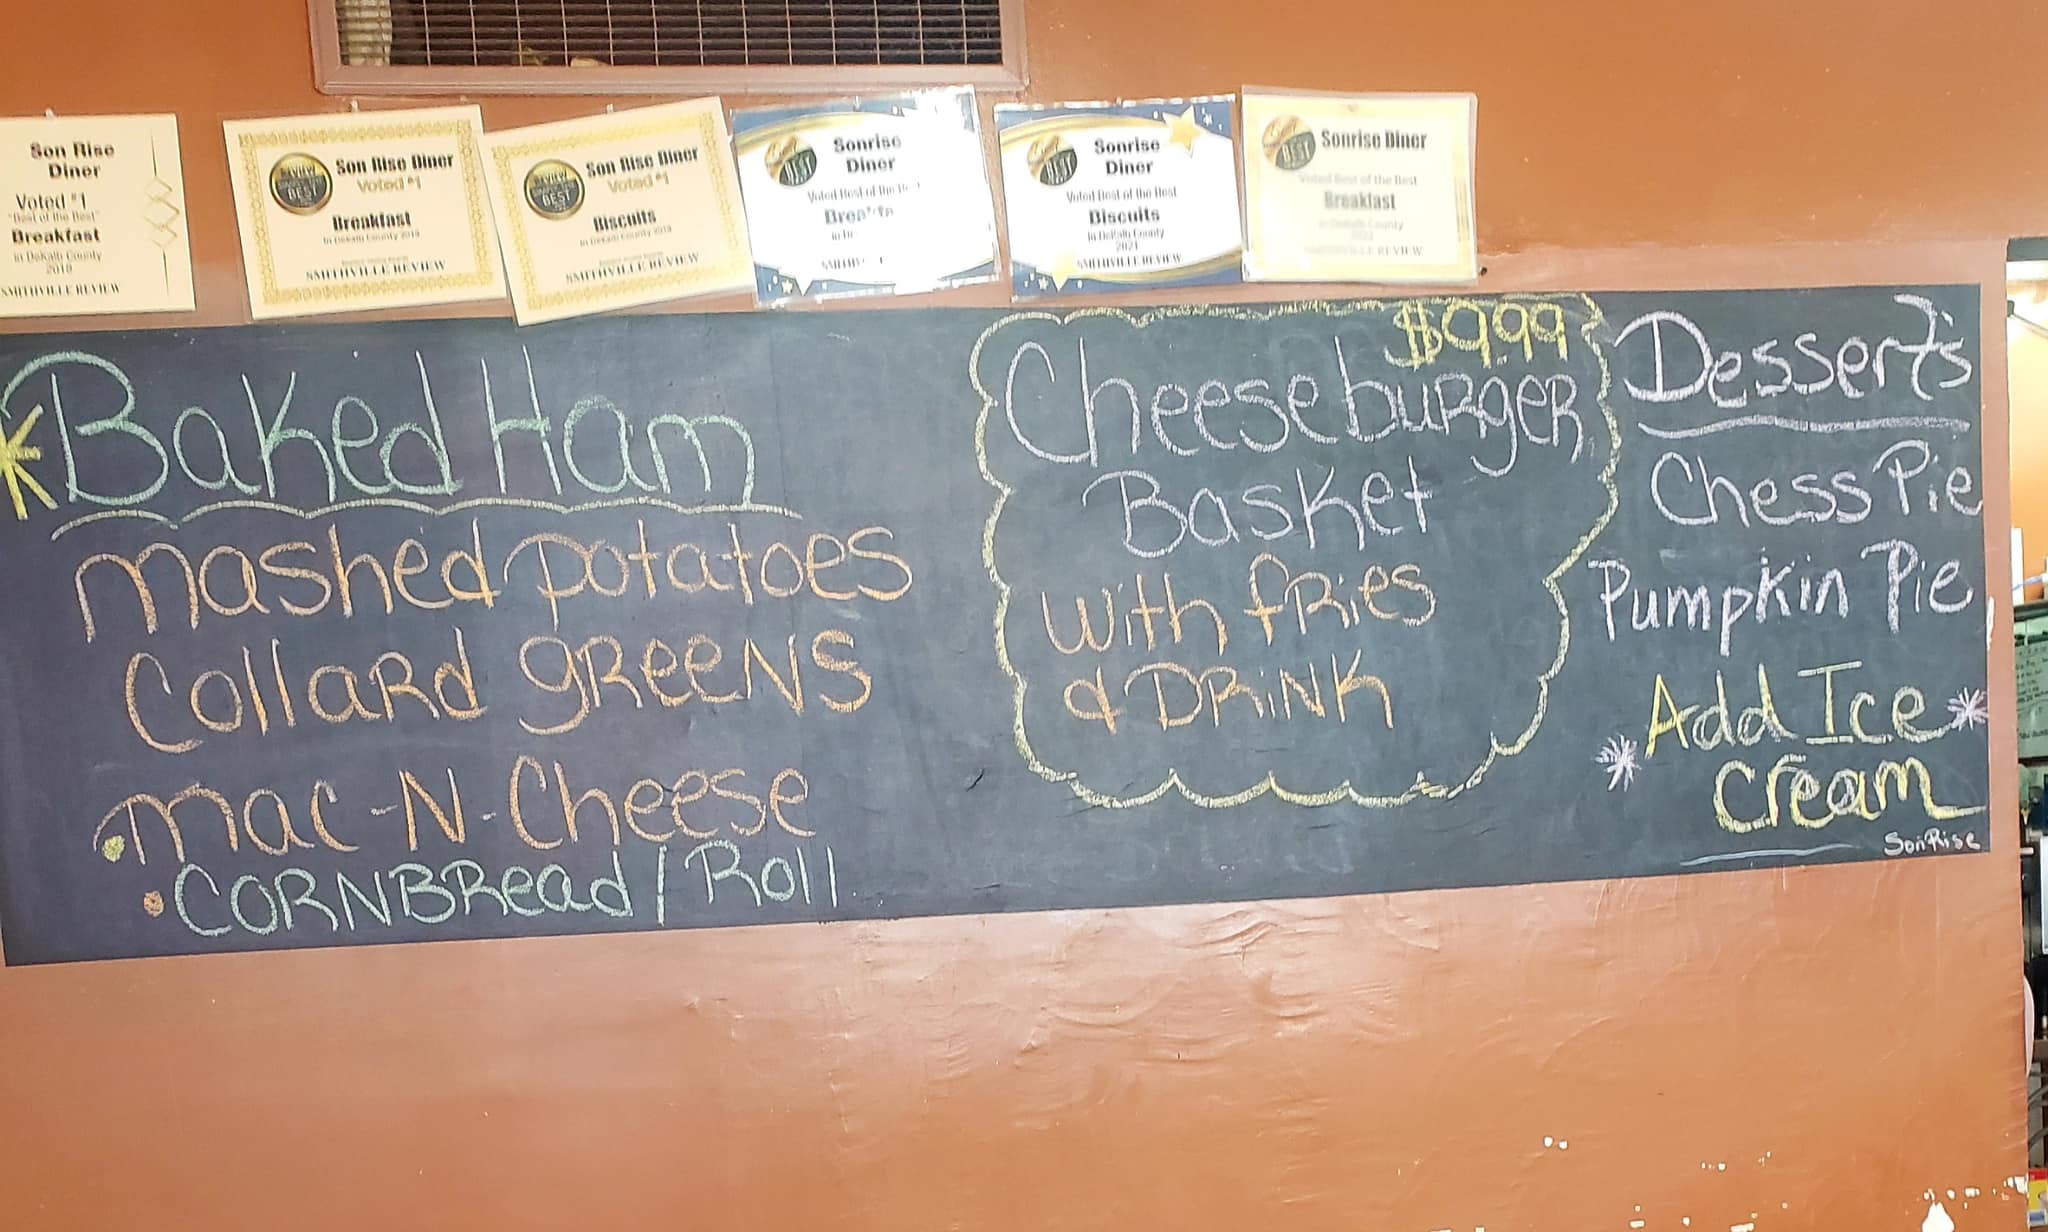 Son Rise
Diner
Voted #1
"Best of the Best"
Breakfast
in DeKalb County
SMITHVILLE REVIEW
REVIEW
BEST
Son Rise Diner
Voted #1
Breakfast
in DeKalb County 2019
SMITHVILLE REVIEW
REVIEW
BEST
Son Rise Diner
Voted #1
Biscuits
in DeKalb County 2019
SMITHVILLE REVIEW
BEST
Sonrise
Diner
Voted Best of the
BEST
Sonrise
Diner
Voted Best of the Best
Biscuits
in DeKalb County
2021
SMITHVILLE REVIEW
BEST
Sonrise Diner
Voted Best of the Best
Breakfast
in DeKalb County
2022
SMITHVILLE REVIEW
Baked Ham
mashed potatoes
Collard greens
mac-N-Cheese
CORNBRead / Roll
$9.99
Cheeseburger
Basket
with fries
& DRiNK
Desserts
Chess Pie
Pumpkin Pie
Add Ice
Cream
SonRise